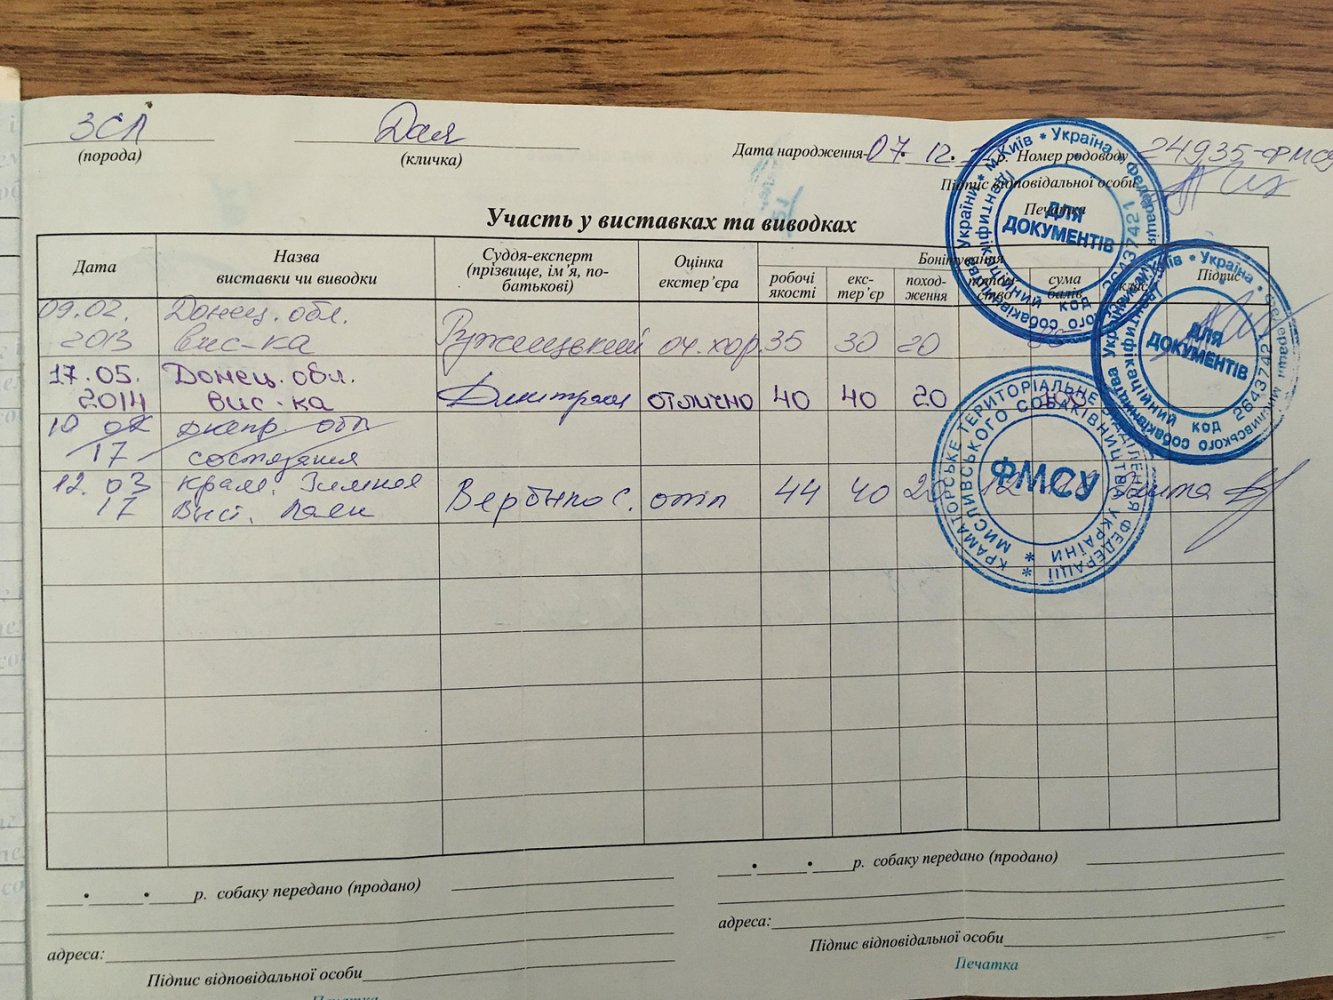 ЗСЛ
(порода)
Дая
(кличка)
Дата народження 07. 12.
Номер родоводу 24935-ФМСУ
Підпис відповідальної особи
Печатка
Участь у виставках та виводках
Дата
Назва
виставки чи виводки
Суддя-експерт
(прізвище, ім'я, по-
батькові)
Оцінка
екстер'єра
Боніт
робочі
якості
екс-
тер'єр
поход-
ження
сума
балів
клас
Підпис
09.02.
2013
Донец. обл.
выс-ка
Ружицький
оч. хор.
35
30
20
17.05.
2014
Донец. обл.
выс-ка
Дмитраш
отлично
40
40
20
10
17
днепр. обл
состязания
12. 03
17
Крам. Зимняя
Выст. Лаек
Вербило С.
отл
44
40
20
12
элита
м.Київ * Україна * Федерація мисливського собаківництва України *
Ідентифікаційний код 26437421
ДЛЯ
ДОКУМЕНТІВ
м.Київ * Україна * Федерація мисливського собаківництва України
Ідентифікаційний код 2643742
ДЛЯ
ДОКУМЕНТІВ
КРАМАТОРСЬКЕ ТЕРИТОРІАЛЬНЕ ВІДДІЛЕННЯ ФЕДЕРАЦІЇ
МИСЛИВСЬКОГО СОБАКІВНИЦТВА УКРАЇНИ
ФМСУ
р. собаку передано (продано)
адреса:
Підпис відповідальної особи
Печатка
р. собаку передано (продано)
адреса:
Підпис відповідальної особи
Печатка